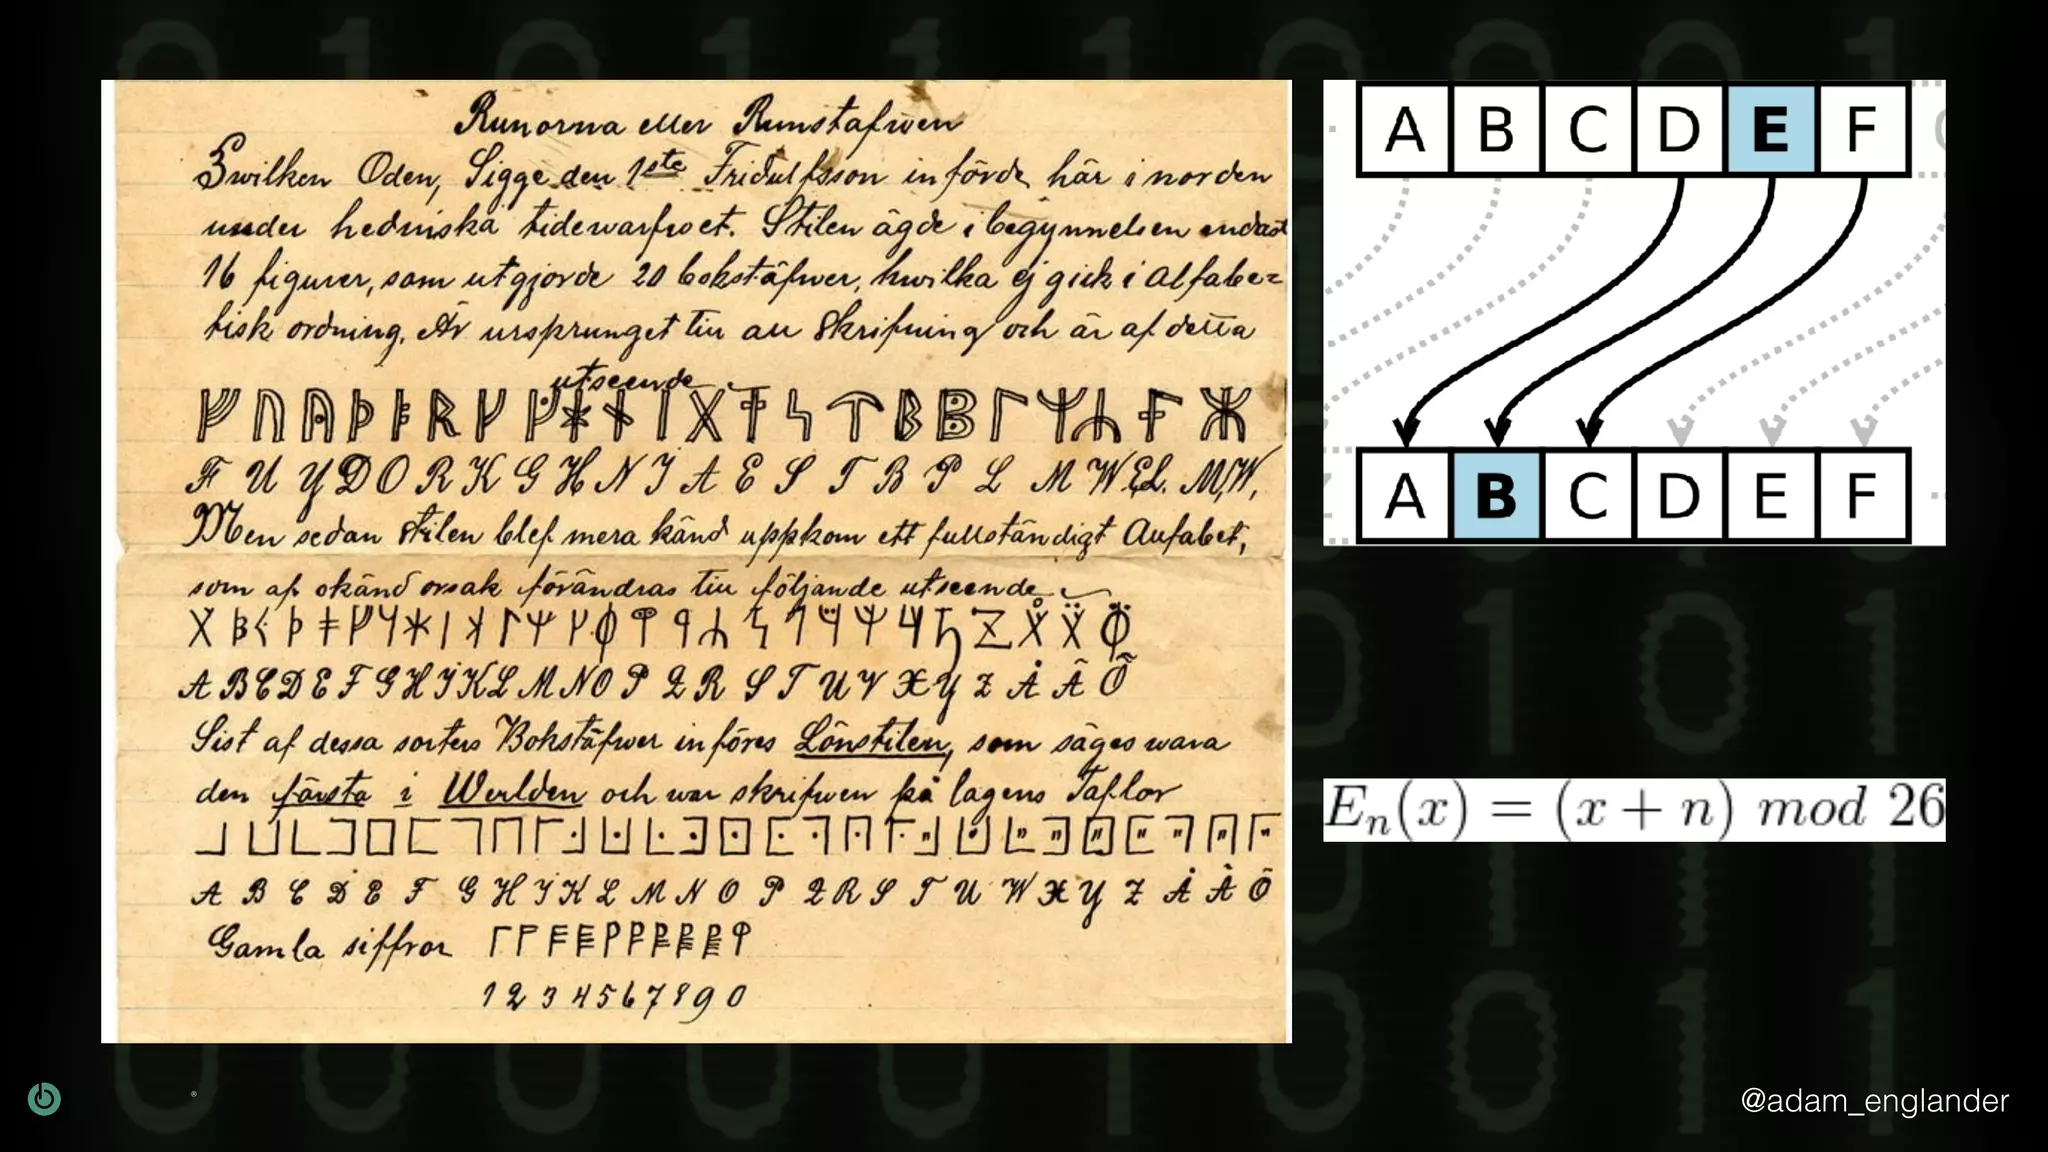 Runorna eller Runstafwen
Hwilken Oden, Sigge den 1ste Fridulfsson införde här i norden
under hedniska tidewarfwet. Stilen ägde i begynnelsen endast
16 figurer, som utgjorde 20 bokstäfwer, hwilka ej gick i Alfabe=
tisk ordning. Är ursprunget till all Skrifning och är af detta
utseende
F U Y D O R K G H N I A E S T B P L M W EL. M,W,
Men sedan stilen blef mera känd uppkom ett fullständigt Alfabet,
som af okänd orsak förändras till följande utseende
A B C D E F G H I K L M N O P Q R S T U V X Y Z Å Ä Ö
Sist af dessa sorters Bokstäfwer införes Lönstilen, som säges wara
den första i Werlden och war skrifwen på lagens Taflor
A B C D E F G H I K L M N O P Q R S T U W X Y Z Å Ä Ö
Gamla siffror
1 2 3 4 5 6 7 8 9 0
A B C D E F
A B C D E F
Eₙ(x) = (x + n) mod 26
®
@adam_englander